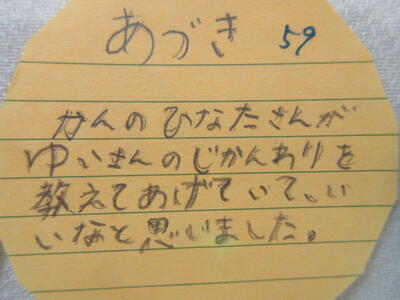 あづき 59
かんのひなたさんが
ゆいさんのじかんわりを
教えてあげていて、い
いなと思いました。